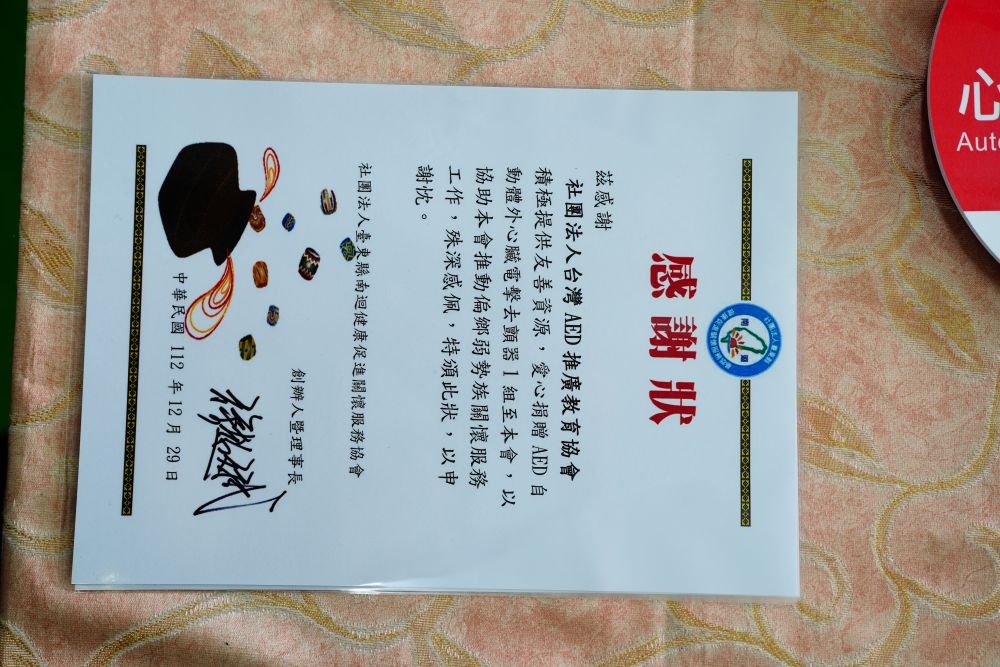 感謝狀
茲感謝
社團法人台灣 AED 推廣教育協會
積極提供友善資源，愛心捐贈 AED 自
動體外心臟電擊去顫器 1 組至本會，以
協助本會推動偏鄉弱勢族關懷服務
工作，殊深感佩，特頒此狀，以申
謝忱。
社團法人臺東縣南迴健康促進關懷服務協會
創辦人暨理事長
中華民國 112 年 12 月 29 日
心
Auto